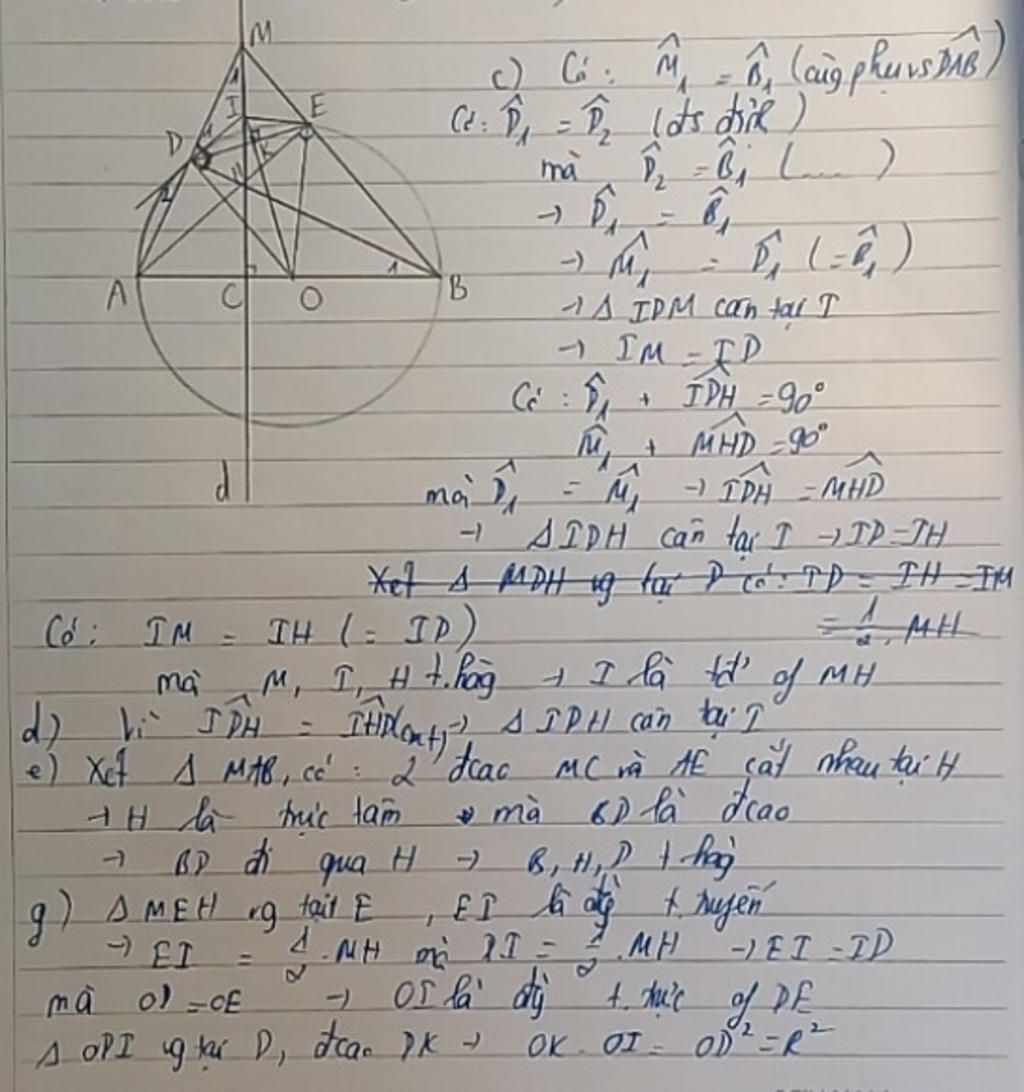 M
I
E
D
H
K
1
1
2
1
A
C
O
B
d
c) Có: M̂₁ = B̂₁ (cùng phụ vs DÂB)
Có: D̂₁ = D̂₂ (đs đỉnh)
mà D̂₂ = B̂₁ (....)
→ D̂₁ = B̂₁
→ M̂₁ = D̂₁ (= B̂₁)
→ Δ IDM cân tại I
→ IM = ID
Có: D̂₁ + ID̂H = 90°
M̂₁ + MĤD = 90°
mà D̂₁ = M̂₁ → ID̂H = MĤD
→ Δ IDH cân tại I → ID = IH
Xét Δ MDH vg tại D có: ID = IH = IM
= 1/2 . MH
Có: IM = IH (= ID)
mà M, I, H t.hàg → I là tđ of MH
d) Vì ID̂H = IĤD (cmt) → Δ IDH cân tại I
e) Xét Δ MAB, có: 2 đcao MC và AE cắt nhau tại H
→ H là trực tâm mà BD là đcao
→ BD đi qua H → B, H, D t hàg
g) Δ MEH vg tại E, EI là đg t.tuyến
→ EI = 1/2 . MH mà DI = 1/2 . MH → EI = ID
mà OD = OE → OI là đg t.trực of DE
Δ ODI vg tại D, đcao DK → OK . OI = OD² = R²